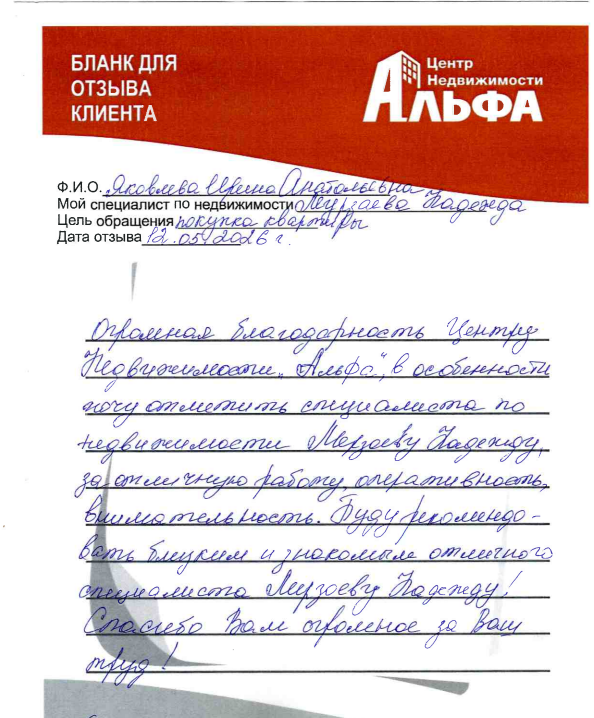 БЛАНК ДЛЯ
ОТЗЫВА
КЛИЕНТА
Центр
Недвижимости
АЛЬФА
Ф.И.О. Яковлева Ирина Анатольевна
Мой специалист по недвижимости Мурзаева Надежда
Цель обращения покупка квартиры
Дата отзыва 12.05.2026 г.
Огромная благодарность Центру
Недвижимости "Альфа", в особенности
хочу отметить специалиста по
недвижимости Мурзаеву Надежду,
за отличную работу, оперативность,
внимательность. Буду рекомендо-
вать близким и знакомым отличного
специалиста Мурзаеву Надежду!
Спасибо Вам огромное за Ваш
труд!